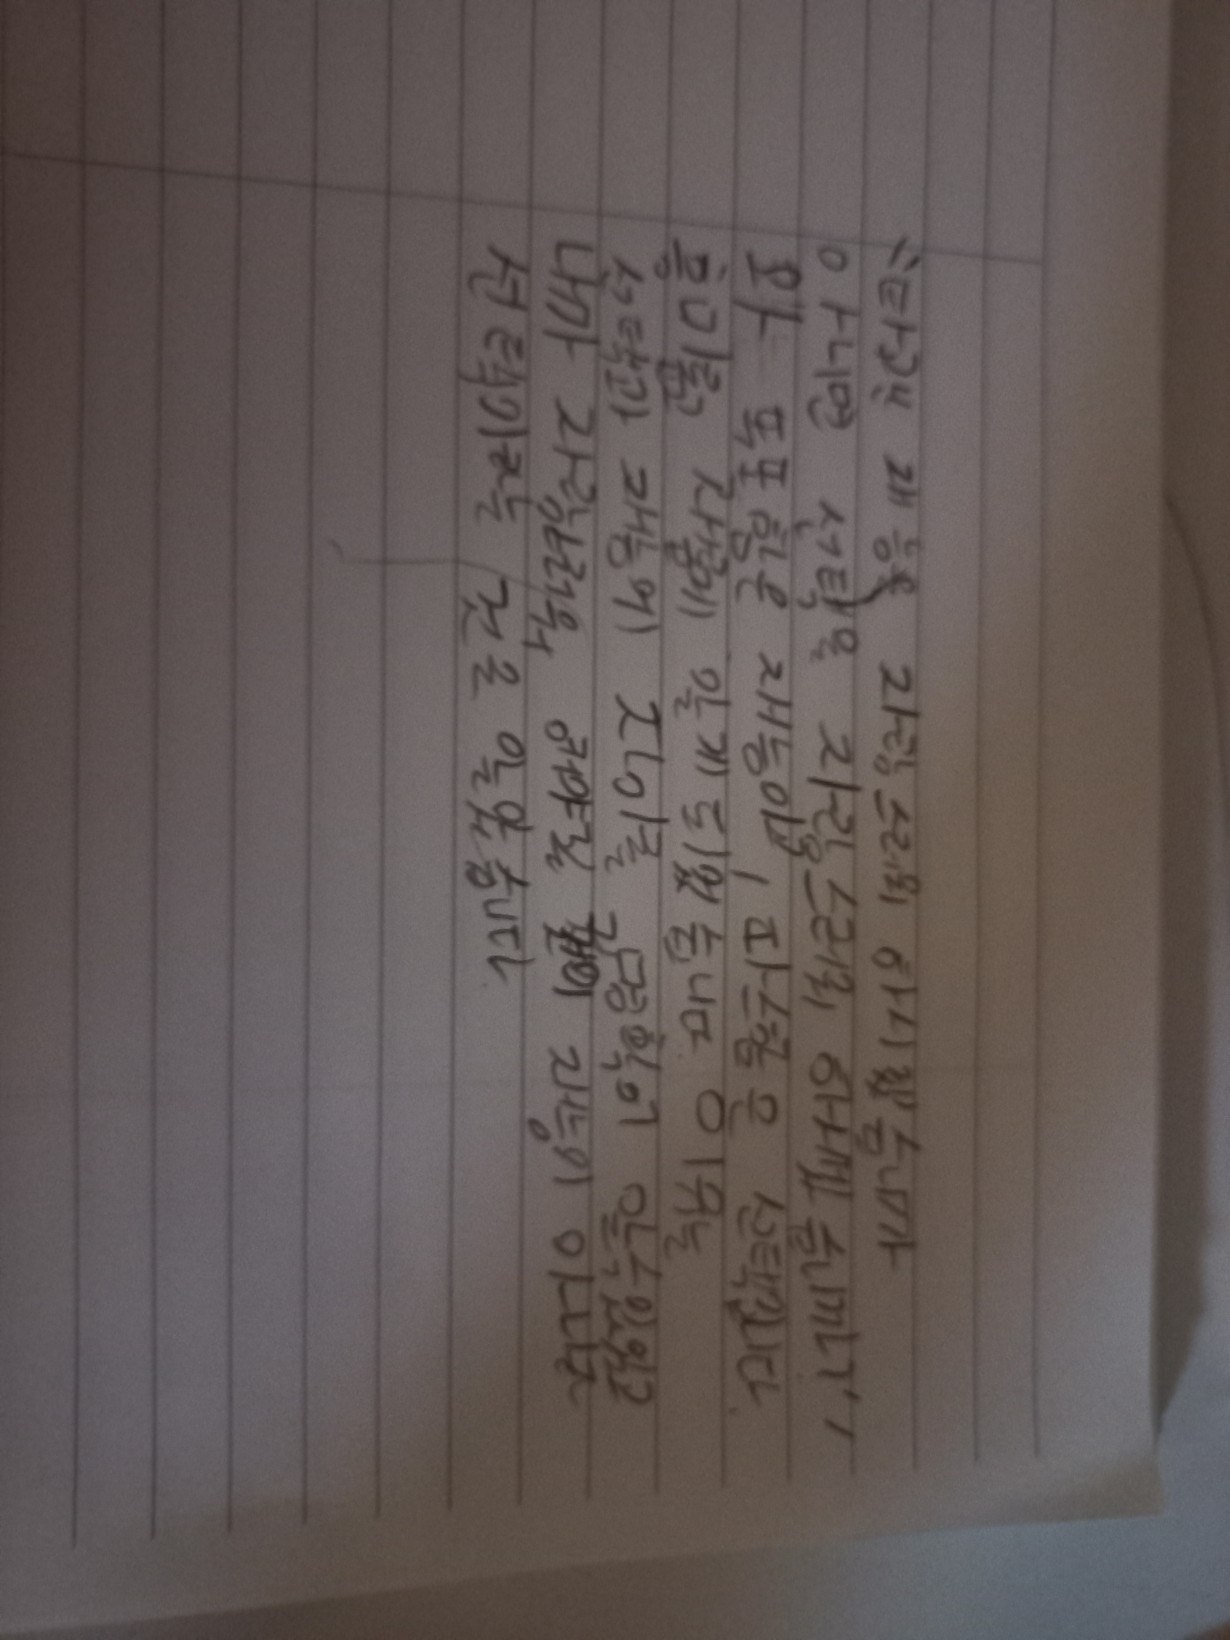 "타고난 재능을 자랑스러워 하시겠습니까
아니면 선택을 자랑스러워 하시겠습니까"
와 똑똑함은 재능이며, 따스함은 선택입니다.
흥미롭 사람이 알게 되었습니다 이유는
선택과 재능의 차이를 감명하게 알수있었고
내가 자랑스러워 해야할 재능이 아니라
선택이라는 것을 알았습니다.